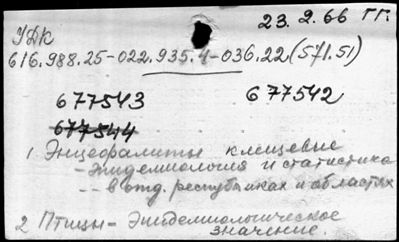 23.2.66 ГГ.
УДК
616.988.25-022.935.4-036.22(571.51)
677543 677542
677544
1 Энцефалиты клещевые
- эпидемиология и статистика
-- в отд. республиках и областях
2 Птицы - Эпидемиологическое
значение.